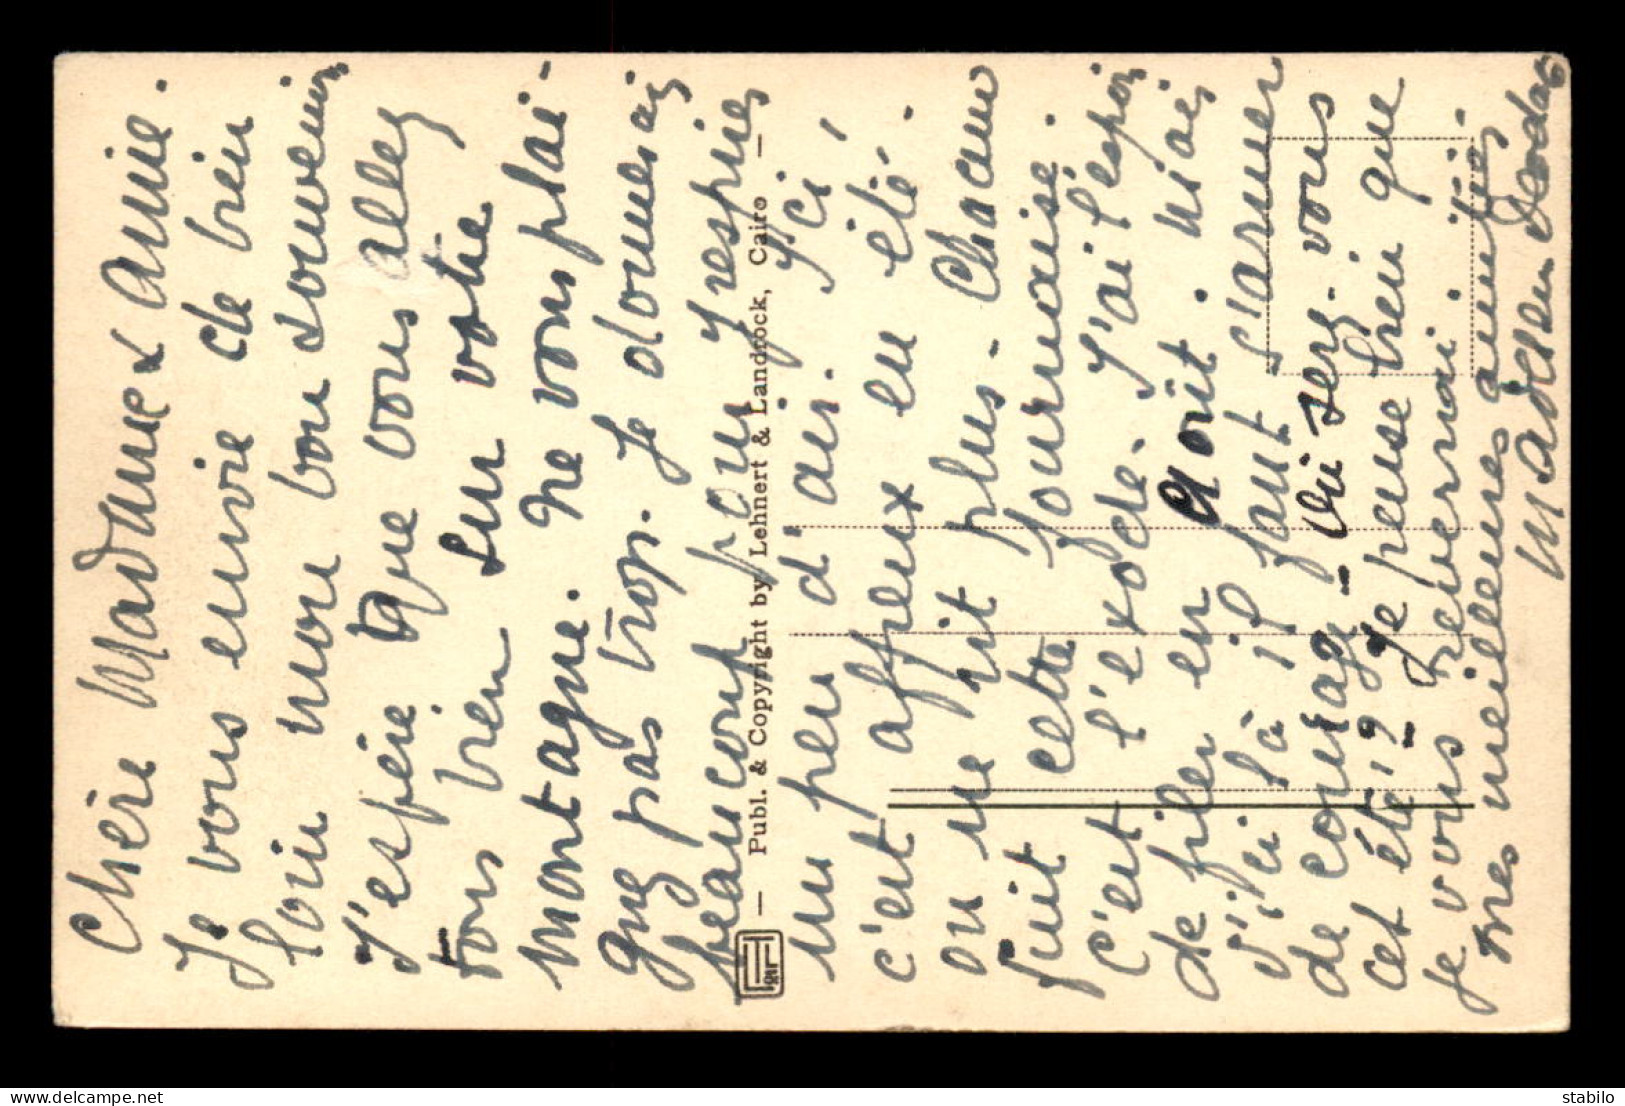 Chère Madame & Amie.
Je vous envoie de bien
loin mon bon souvenir
J'espère que vous allez
tous bien sur votre
montagne. Ne vous plai-
gnez pas trop. Je donnerais
beaucoup pour y respirer
un peu d'air. Ici,
c'est affreux en été.
on ne vit plus. Chacun
fuit cette fournaise.
c'est l'exode. J'ai l'espoir
de filer en Août. mais
d'ici là il faut s'armer
de courage - Où serez-vous
cet été? Je pense bien que
je vous reverrai.
mes meilleures amitiés
Madeleine
— Publ. & Copyright by Lehnert & Landrock, Cairo —
delcampe.net
stabilo